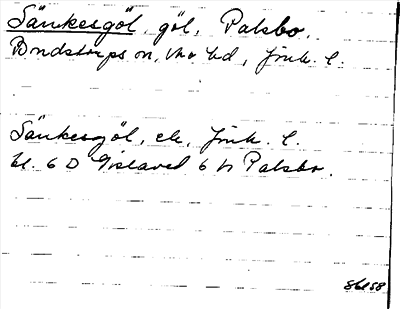 Sänkesgöl, göl, Palsbo,
Bondstorps sn, Mo hd, Jönk. l.
Sänkesgöl, ek, Jönk. l.
bl. 6 D Gislaved 6 h Palsbo.